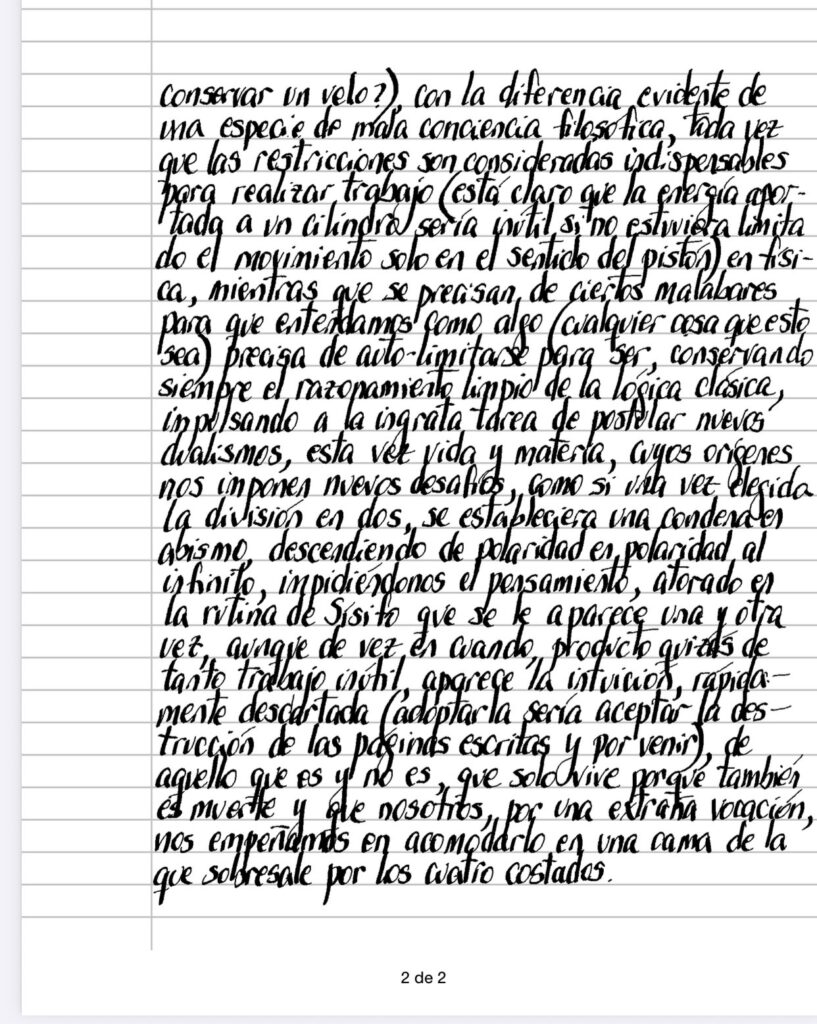 conservar un velo?), con la diferencia evidente de
una especie de mala conciencia filosófica, toda vez
que las restricciones son consideradas indispensables
para realizar trabajo (está claro que la energía apor-
tada a un cilindro sería inútil si no estuviera limita
do el movimiento solo en el sentido del pistón) en físi-
ca, mientras que se precisan de ciertos malabares
para que entendamos como algo (cualquier cosa que esto
sea) precisa de auto-limitarse para ser, conservando
siempre el razonamiento limpio de la lógica clásica,
impulsando a la ingrata tarea de postular nuevos
dualismos, esta vez vida y materia, cuyos orígenes
nos imponen nuevos desafíos, como si una vez elegida
la división en dos, se estableciera una condena en
abismo, descendiendo de polaridad en polaridad al
infinito, impidiéndonos el pensamiento, atorado en
la rutina de Sísifo que se le aparece una y otra
vez, aunque de vez en cuando, producto quizás de
tanto trabajo inútil, aparece la intuición, rápida-
mente descartada (adoptarla sería aceptar la des-
trucción de las páginas escritas y por venir), de
aquello que es y no es, que solo vive porque también
es muerte y que nosotros, por una extraña vocación,
nos empeñamos en acomodarlo en una cama de la
que sobresale por los cuatro costados.
2 de 2